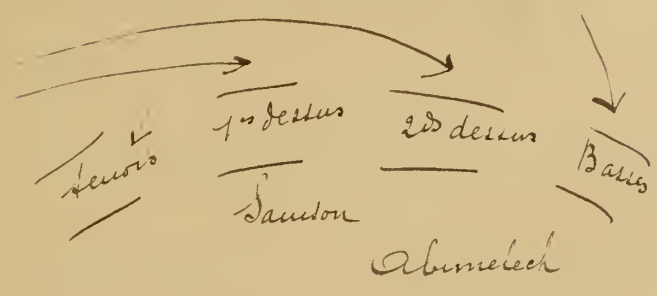 Tenors 1ers dessus 2ds dessus Basses
Samson
Abimelech